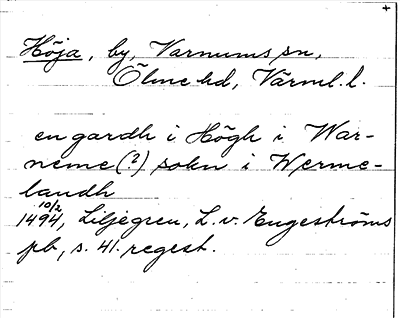 +
Höja, by, Varnums sn,
Ölme hd, Värml. l.
en gardh i Högh i War-
neme (?) sokn i Werme-
landh
10/2
1494, Liljegren, L. v. Engeströms
pb, s. 41. regest.